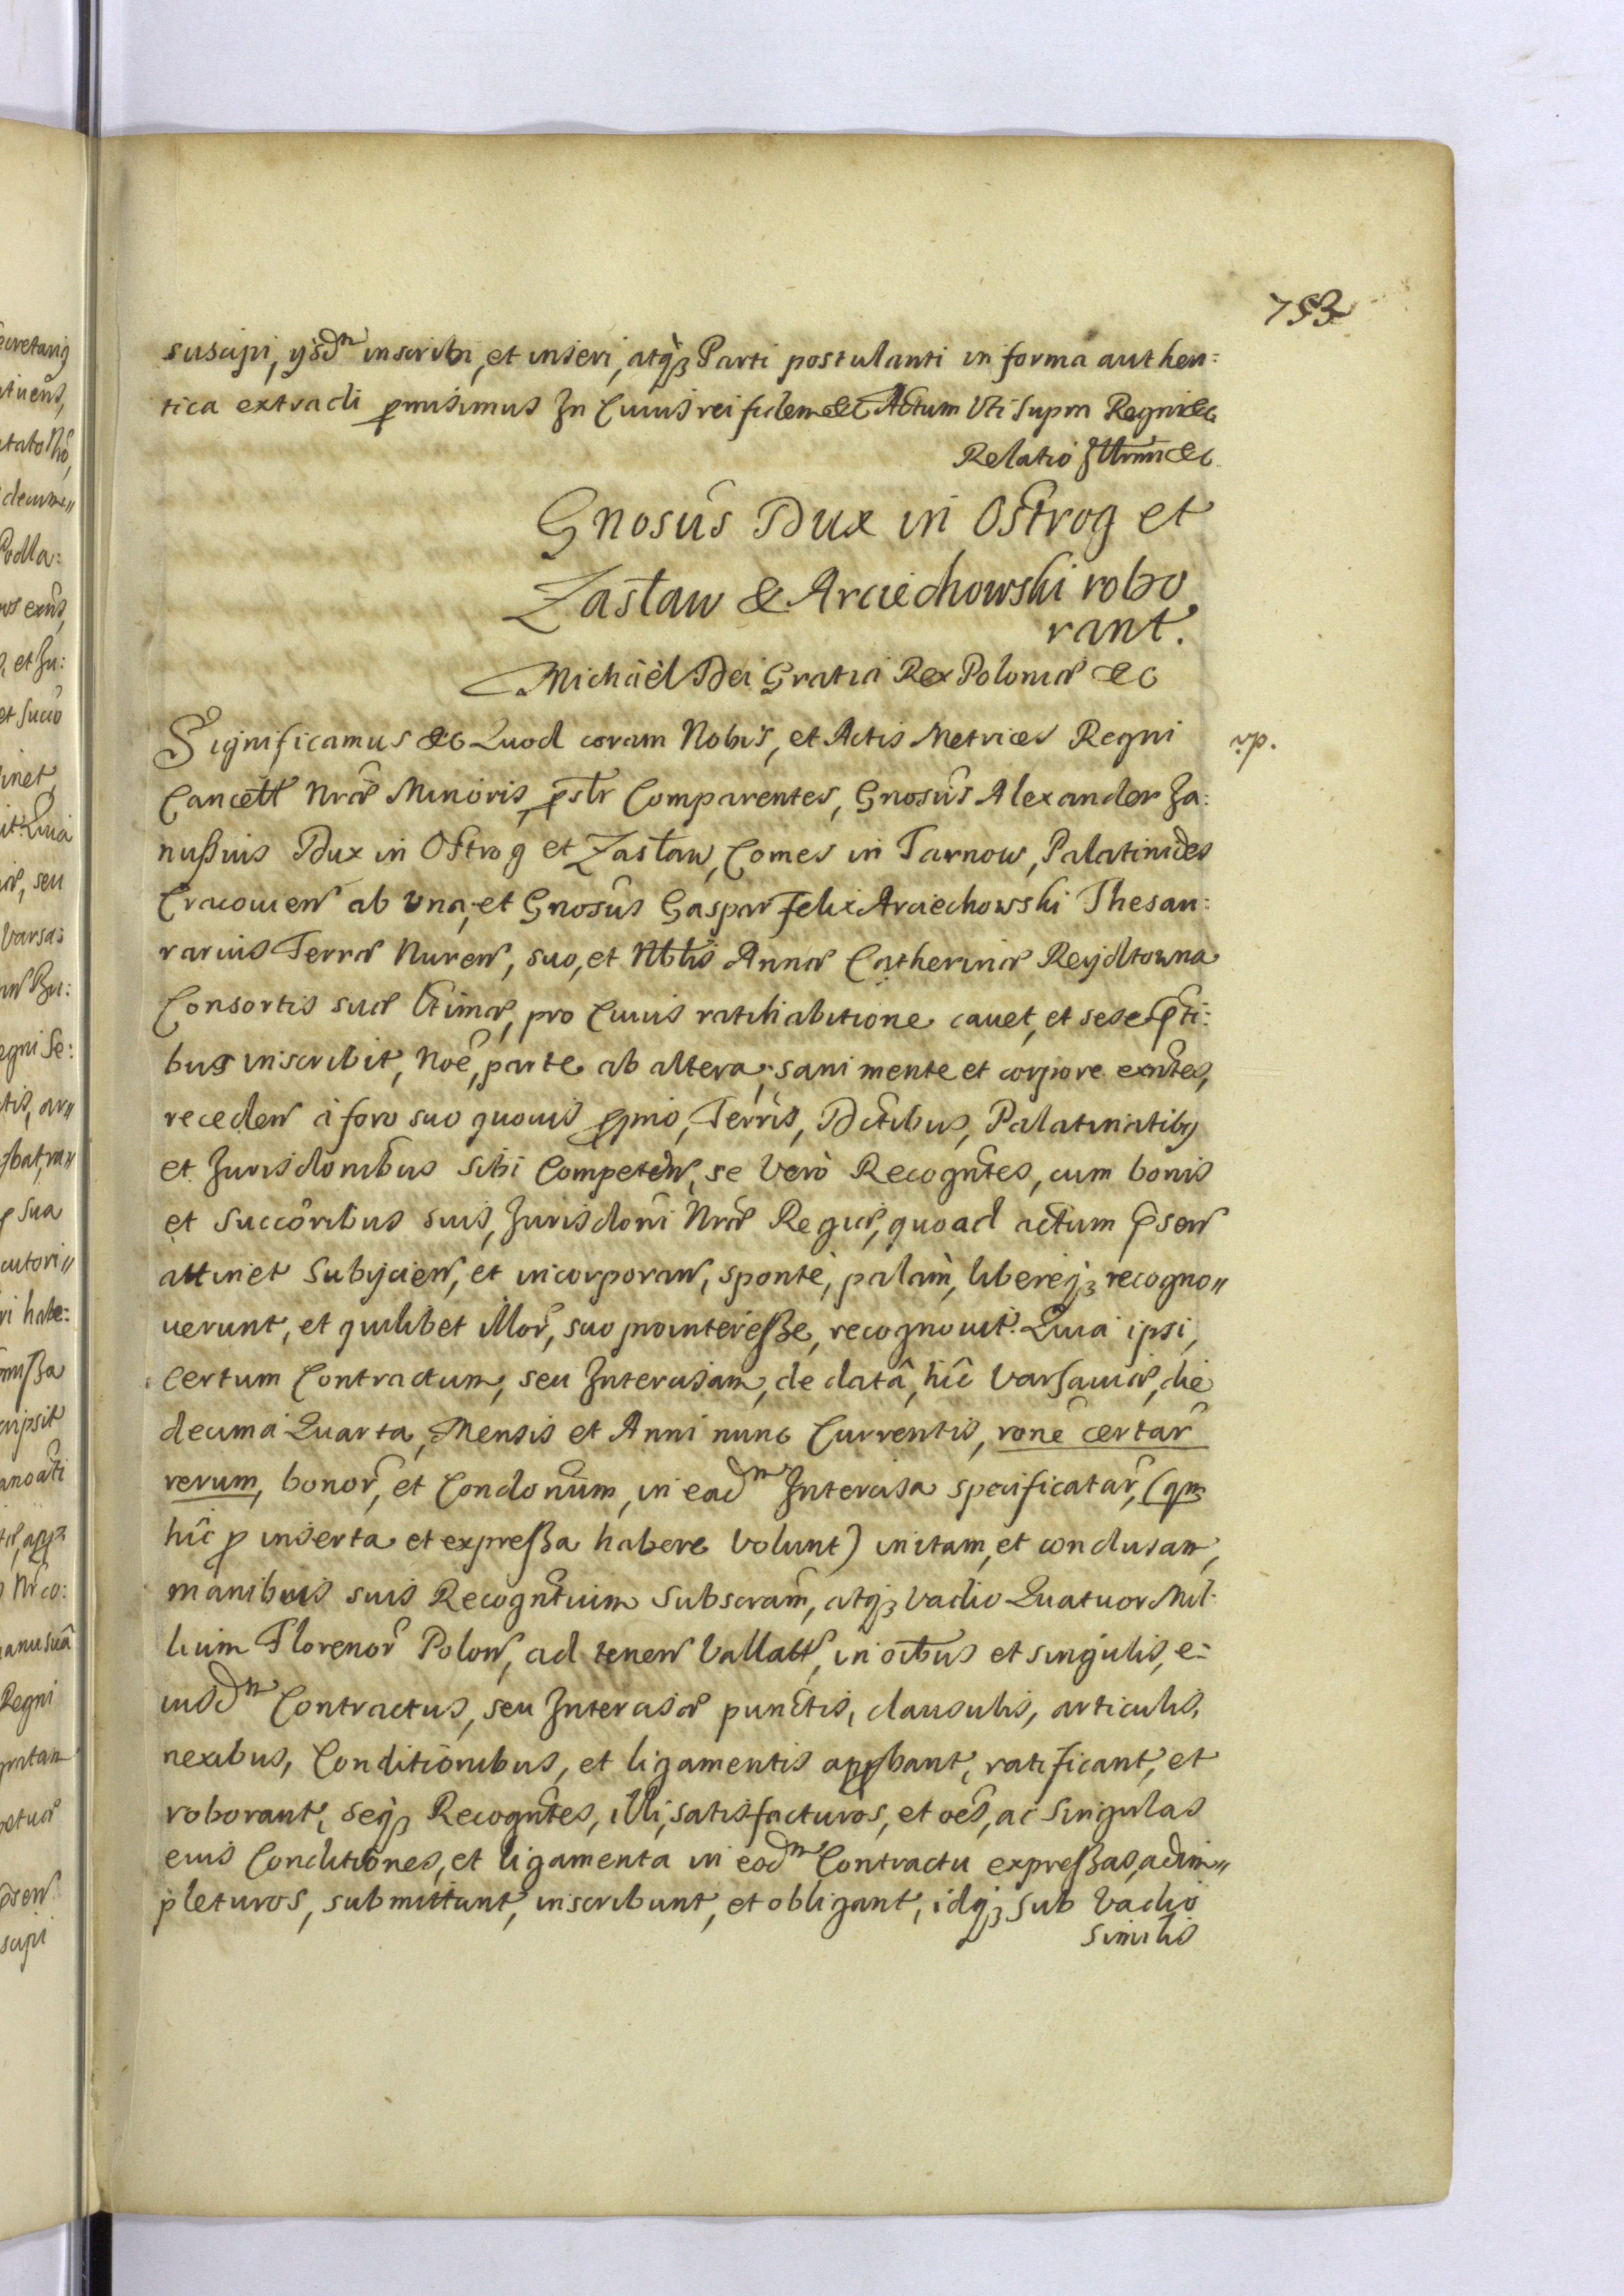 753
suscipi, ijsdm inscribi, et inseri, atq3 Parti postulanti in forma authen:
tica extradi pmisimus In Cuius rei fidem &c Actum Vti supra Regni &c
Relatio &c
Gnosus Dux in Ostrog et
Zasław & Arciechowski robo
rant.
Michaël Dei Gratia Rex Poloniæ &c
Significamus &c Quod coram Nobis, et Actis Metrices Regni
rp.
Cancell Nræ Minoris, pslr Comparentes, Gnosus Alexander Ja:
nußius Dux in Ostrog et Zasław, Comes in Tarnow, Palatinides
Cracouien ab vna, et Gnosus Gaspar Felix Arciechowski Thesau:
rarius Terræ Nuren, suo, et Nblis Annæ Catherinæ Reydtowna
Consortis suæ ltimæ, pro Cuius ratihabitione cauet, et sese pnti:
bus inscribit, Noe, parte ab altera, sani mente et corpore exntes,
receden à foro suo quouis pprio, Terris, Dctibus, Palatinatibq
et Jurisdonibus sibi Competen, se verò Recogntes, cum bonis
et Succoribus suis, Jurisdoni Nræ Regiæ, quoad actum psen
attinet Subijcien, et incorporan, sponte, palam, libereq3 recogno〃
uerunt, et quilibet illor, suo prointereße, recognouit. Quia ipsi,
certum Contractum, seu Intercisam, de datâ, hîc Varsauiæ, die
decima Quarta, Mensis et Anni nunc Currentis, rone certar
rerum, bonor, et Condonum, in eadm Intercisa specificatar, (qm
hîc p inserta et expreßa habere volunt) initam, et conclusam,
manibus suis Recogntium subscram, atq3 vadio Quatuor Mil:
lium Florenor Polon, ad tenen Vallatt, in oibus et singulis, e:
iusdm Contractus, seu Intercisæ punctis, clausulis, articulis,
nexibus, Conditionibus, et ligamentis appbant, ratificant, et
roborant, seq3 Recogntes, illi, satisfacturos, et oes, ac singulas
eius Conditiones, et ligamenta in eodm Contractu expreßas, adim〃
pleturos, submittunt, inscribunt, et obligant, idq3 sub Vadio
similis